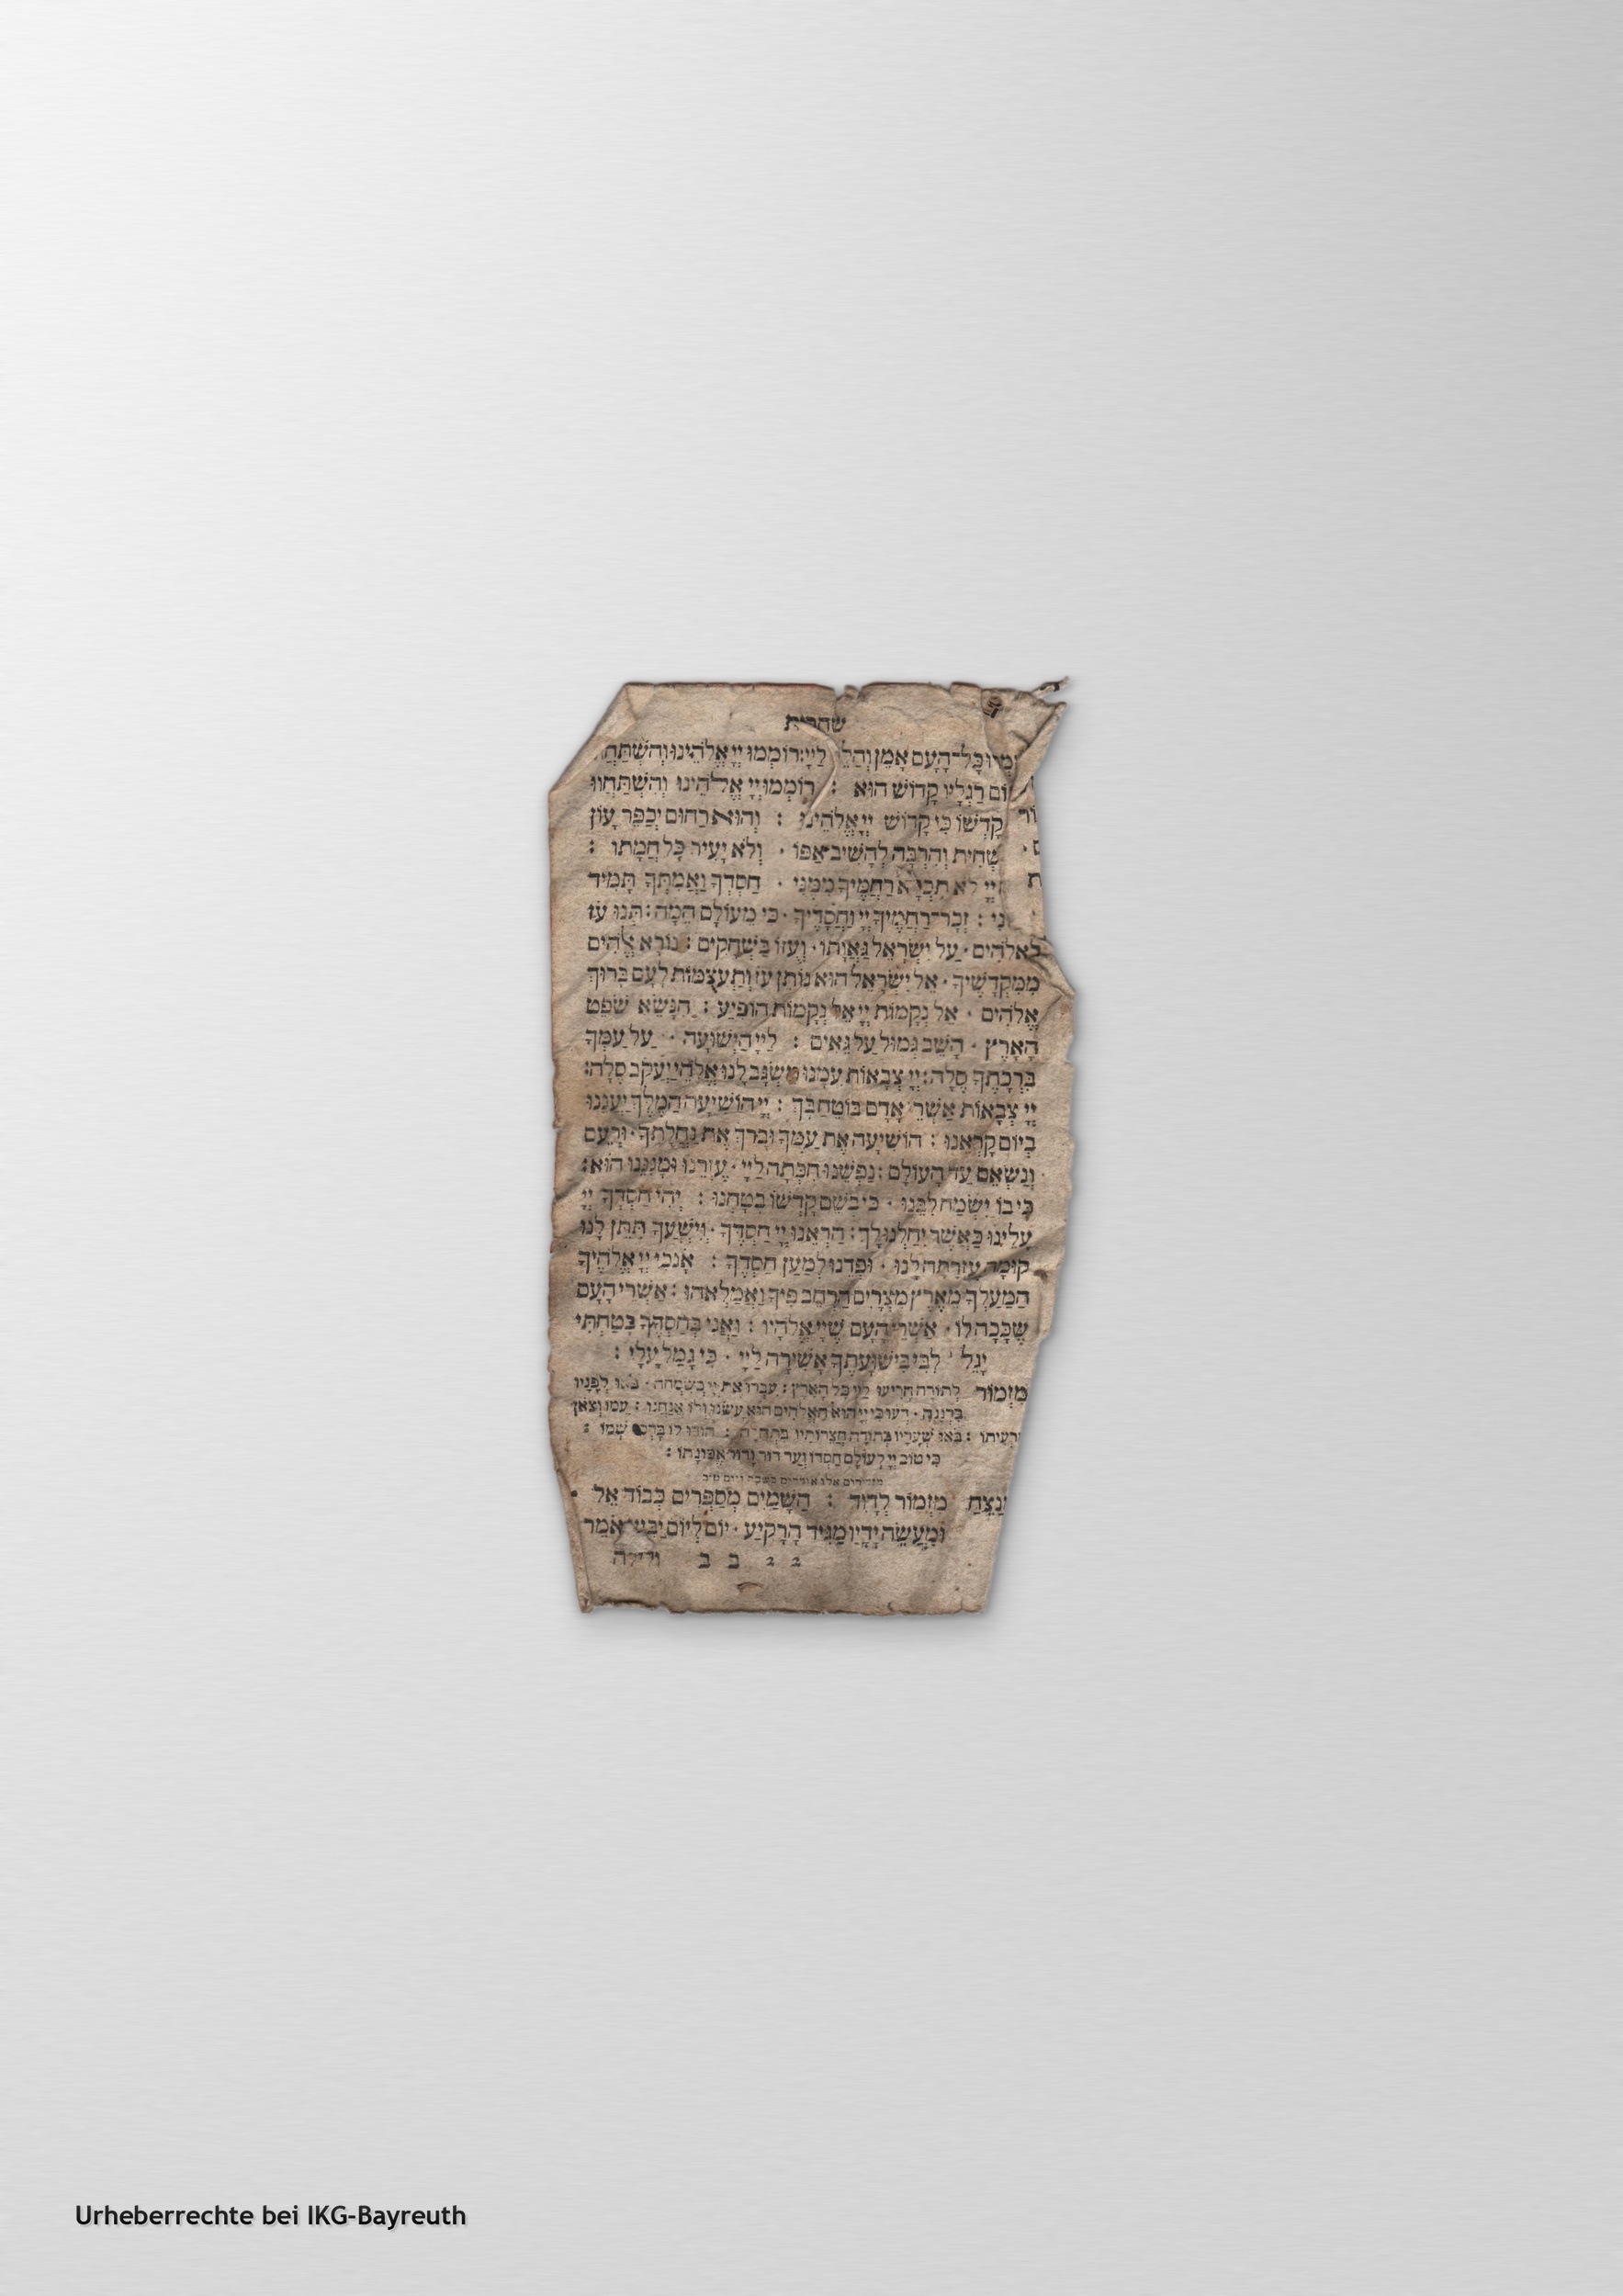 שחרית
כָּל־הָעָם אָמֵן לַייָ: רוֹמְמוּ יְיָ אֱלֹהֵינוּ וְהִשְׁתַּחֲו
רַגְלָיו קָדוֹשׁ הוּא : רוֹמְמוּ יְיָ אֱלֹהֵינוּ וְהִשְׁתַּחֲווּ
קָדְשׁוֹ כִּי קָדוֹשׁ יְיָ אֱלֹהֵינוּ : וְהוּא רַחוּם יְכַפֵּר עָוֹן
יַשְׁחִית וְהִרְבָּה לְהָשִׁיב אַפּוֹ · וְלֹא יָעִיר כָּל חֲמָתוֹ :
יְיָ לֹא תִכְלָא רַחֲמֶיךָ מִמֶּנִּי · חַסְדְּךָ וַאֲמִתְּךָ תָּמִיד
נִי : זְכָר־רַחֲמֶיךָ יְיָ וַחֲסָדֶיךָ · כִּי מֵעוֹלָם הֵמָּה : תְּנוּ עֹז
לֵאלֹהִים · עַל יִשְׂרָאֵל גַּאֲוָתוֹ · וְעֻזּוֹ בַּשְּׁחָקִים : נוֹרָא אֱלֹהִים
מִמִּקְדָּשֶׁיךָ · אֵל יִשְׂרָאֵל הוּא נוֹתֵן עֹז וְתַעֲצֻמוֹת לָעָם בָּרוּךְ
אֱלֹהִים · אֵל נְקָמוֹת יְיָ אֵל נְקָמוֹת הוֹפִיעַ : הִנָּשֵׂא שֹׁפֵט
הָאָרֶץ · הָשֵׁב גְּמוּל עַל גֵּאִים : לַייָ הַיְשׁוּעָה · עַל עַמְּךָ
בִּרְכָתֶךָ סֶּלָה : יְיָ צְבָאוֹת עִמָּנוּ מִשְׂגָּב לָנוּ אֱלֹהֵי יַעֲקֹב סֶלָה:
יְיָ צְבָאוֹת אַשְׁרֵי אָדָם בּוֹטֵחַ בָּךְ : יְיָ הוֹשִׁיעָה הַמֶּלֶךְ יַעֲנֵנוּ
בְיוֹם קָרְאֵנוּ : הוֹשִׁיעָה אֶת עַמֶּךָ וּבָרֵךְ אֶת נַחֲלָתֶךָ · וּרְעֵם
וְנַשְּׂאֵם עַד הָעוֹלָם : נַפְשֵׁנוּ חִכְּתָה לַייָ · עֶזְרֵנוּ וּמָגִנֵּנוּ הוּא:
כִּי בוֹ יִשְׂמַח לִבֵּנוּ · כִּי בְשֵׁם קָדְשׁוֹ בָטָחְנוּ : יְהִי חַסְדְּךָ יְיָ
עָלֵינוּ כַּאֲשֶׁר יִחַלְנוּ לָךְ : הַרְאֵנוּ יְיָ חַסְדֶּךָ · וְיֶשְׁעֲךָ תִּתֶּן לָנוּ
קוּמָה עֶזְרָתָה לָּנוּ · וּפְדֵנוּ לְמַעַן חַסְדֶּךָ : אָנֹכִי יְיָ אֱלֹהֶיךָ
הַמַּעַלְךָ מֵאֶרֶץ מִצְרָיִם הַרְחֶב פִּיךָ וַאֲמַלְאֵהוּ : אַשְׁרֵי הָעָם
שֶׁכָּכָה לּוֹ · אַשְׁרֵי הָעָם שֶׁיְיָ אֱלֹהָיו : וַאֲנִי בְּחַסְדְּךָ בָטַחְתִּי
יָגֵל לִבִּי בִּישׁוּעָתֶךָ אָשִׁירָה לַייָ · כִּי גָמַל עָלָי :
מִזְמוֹר לְתוֹדָה הָרִיעוּ לַייָ כָּל הָאָרֶץ : עִבְדוּ אֶת יְיָ בְּשִׂמְחָה · לְפָנָיו
בִּרְנָנָה · דְּעוּ כִּי יְיָ הוּא הָאֱלֹהִים הוּא עָשָׂנוּ וְלוֹ אֲנַחְנוּ : עַמּוֹ וְצֹאן
מַרְעִיתוֹ : בֹּאוּ שְׁעָרָיו בְּתוֹדָה חֲצֵרוֹתָיו בִּתְהִלָּה : הוֹדוּ לוֹ בָּרְכוּ שְׁמוֹ :
כִּי טוֹב יְיָ לְעוֹלָם חַסְדּוֹ וְעַד דּוֹר וָדוֹר אֱמוּנָתוֹ :
אלו אומרים בשבת ויום טוב
מִזְמוֹר לְדָוִד : הַשָּׁמַיִם מְסַפְּרִים כְּבוֹד אֵל ·
וּמַעֲשֵׂה יָדָיו מַגִּיד הָרָקִיעַ · יוֹם לְיוֹם יַבִּיעַ אֹמֶר
2 2 ב ב ולילה
Urheberrechte bei IKG-Bayreuth